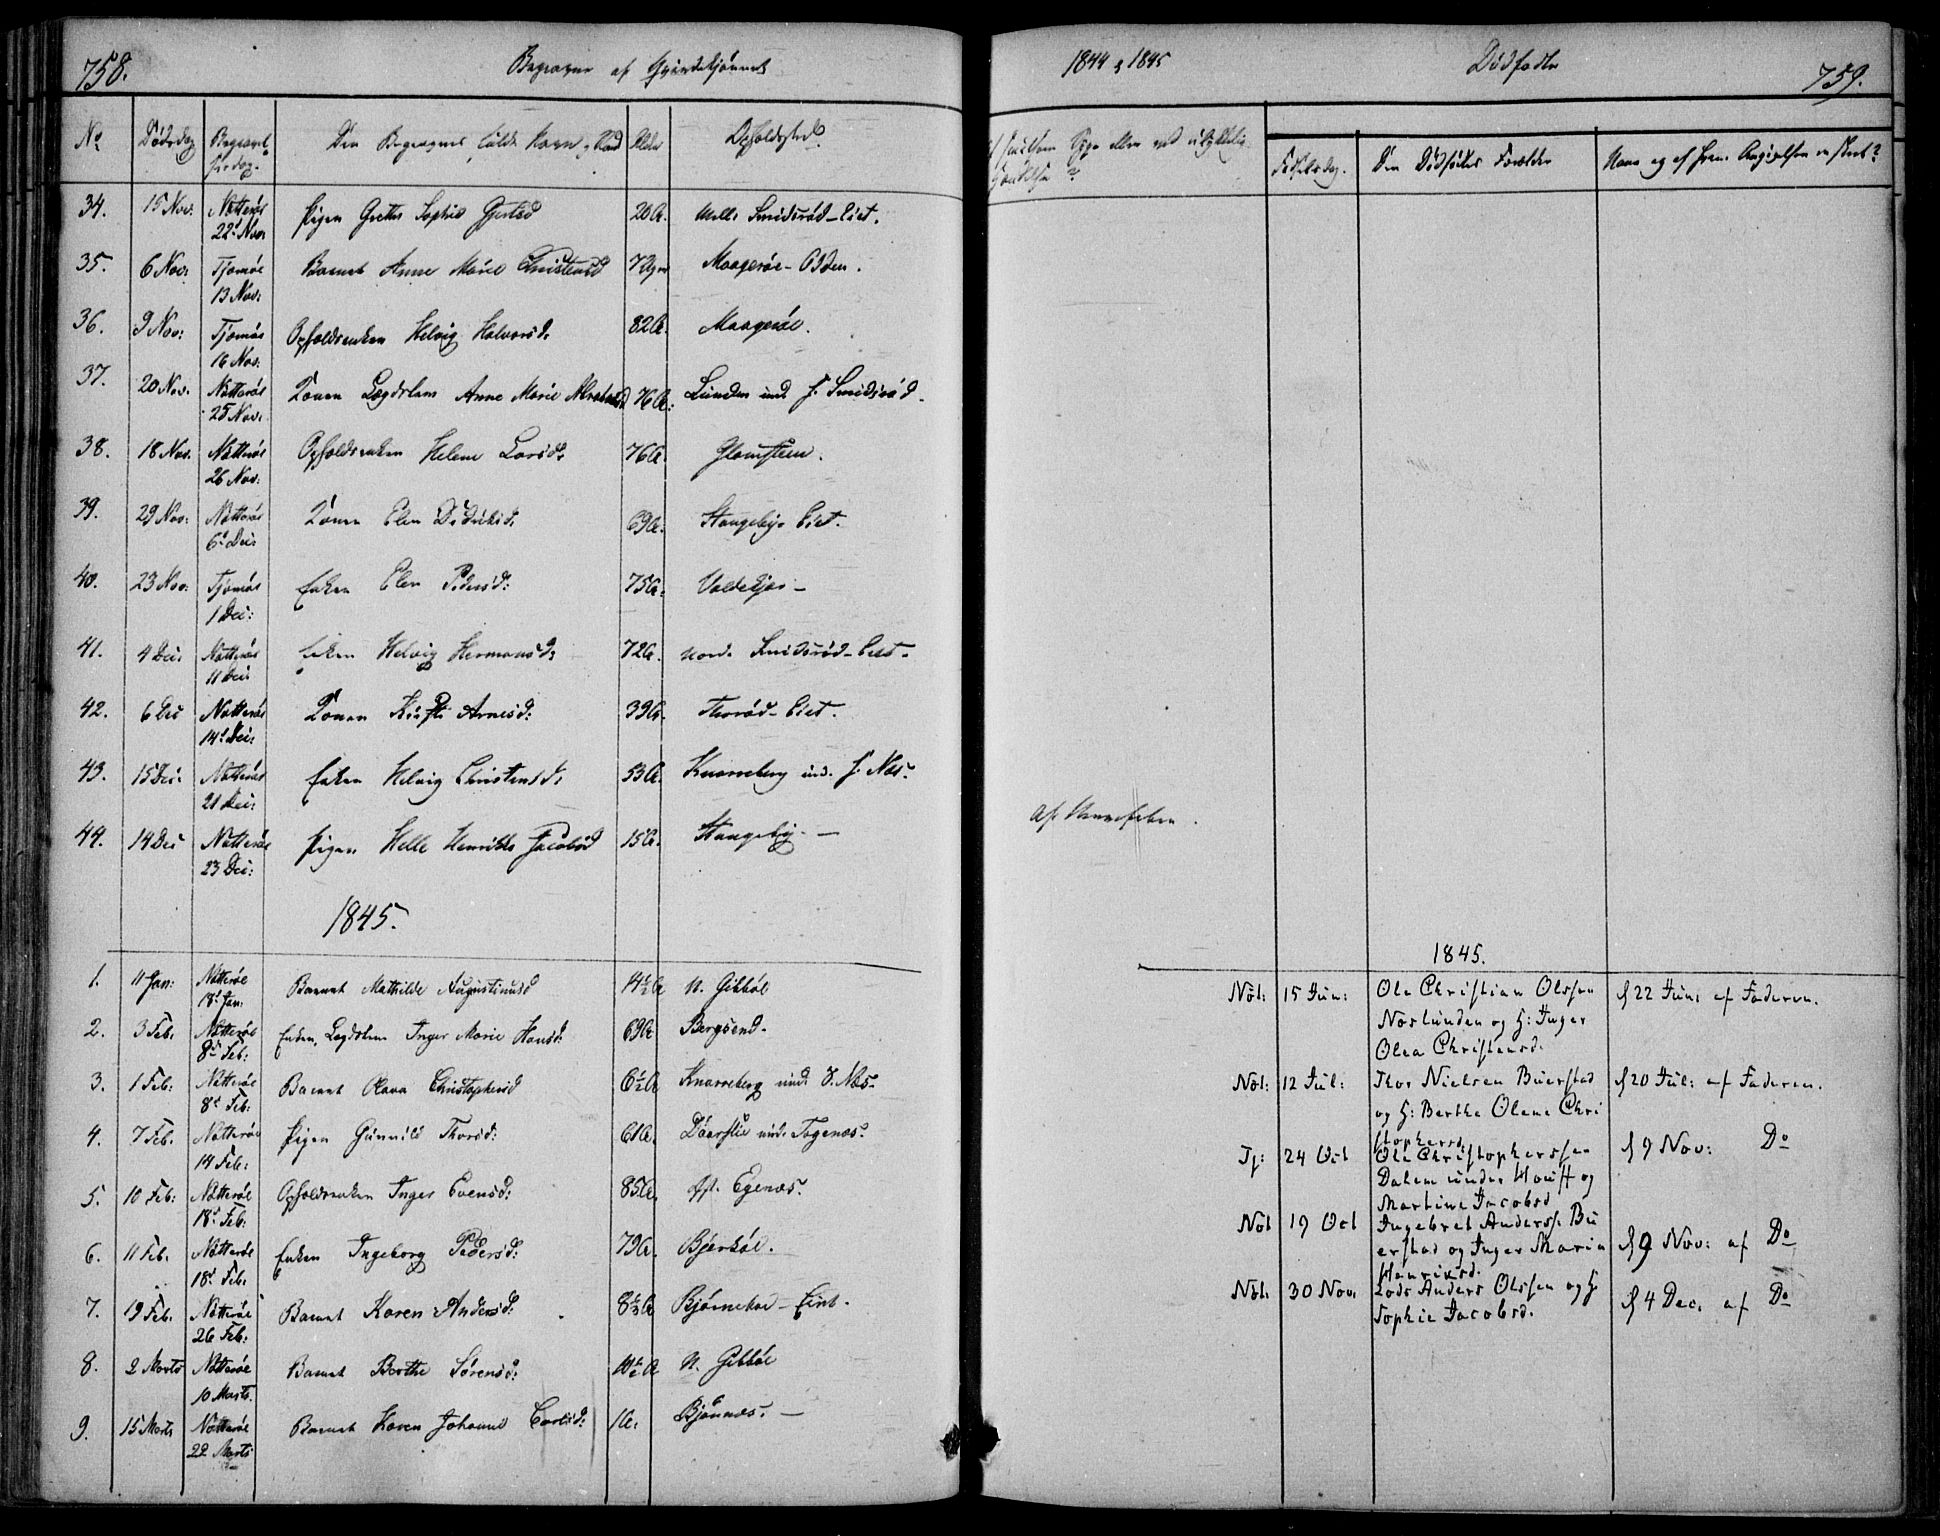 758.
Begravne af Qvindekjønnet
No
Dødsdag
Begravelsesdag.
Den Begravnes fulde Navn og Stand
Alder
Opholdssted.
34. 15 Nov: Nøtterøe 22d Nov: Pigen Grethe Sophie 20 A. Melle Smidsrød-Eiet.
35. 6 Nov: Tjømøe 13 Nov: Barnet Anne Marie Christensd 7 Maagerøe-Odden.
36. 9 Nov: Tjømøe 16 Nov: Opholdsenken Helvig Halvorsd: 82 A. Maagerøe.
37. 20 Nov. Nøtterøe 25 Nov: Konen Lægdslem Anne Marie 76 A: Lunden und. S. Smidsrød.
38. 18 Nov. Nøtterøe 26 Nov: Opholdsenken Helene Larsd: 76 A. Glomsteen.
39. 29 Nov: Nøtterøe 6d Dec: Konen Elen Didriksd. 69 A. Stangeby-Eiet.
40. 23 Nov: Tjømøe 1 Dec: Enken Elen Pedersd: 75 A. Valdekjær-
41. 4 Dec: Nøtterøe 11 Dec: Enken Helvig Hermansd: 72 A. Nord. Smidsrød-Eiet.
42. 6 Dec Nøtterøe 14d Dec: Konen Kirsti Arnesd: 39 A. Thorød-Eiet.
43. 15 Dec. Nøtterøe 21 Dec: Enken Helvig Christensd: 53 A. Knarreberg und. S. Næs.
44. 14 Dec Nøtterøe 23 Dec: Pigen Helle Henrikke Jacobsd 15 A. Stangeby. -
1845.
1. 11 Jan: Nøtterøe 18d Jan: Barnet Mathilde Augustinusd 14½ A N. Gibbøl
2. 3 Feb: Nøtterøe 8de Feb: Enken, Lægdslem Inger Marie Hansd: 69 A Bergsend.
3. 1 Feb: Nøtterøe 8d Feb: Barnet Olava Christophersd 6½ A Knarreberg und. S. Næs.
4. 7 Feb. Nøtterøe 14 Feb: Pigen Gunnild Thorsd: 61 A.
5. 10 Feb: Nøtterøe 18d Feb: Opholdsenken Inger Evensd: 85 A. Egenæs.
6. 11 Feb. Nøtterøe 18d Feb. Enken Ingeborg Pedersd: 79 A. Bjerkøe.
7. 19 Feb. Nøtterøe 26 Feb: Barnet Karen Andersd: 8½ A Bjørneboe - Eiet.
8. 2 Marts Nøtterøe 10 Marts. Barnet Berthe Sørensd: 10½ A N. Gibbøl
9. 15 Marts Nøtterøe 22 Marts Barnet Karen Johanne Carlsd: 1 A. Bjønnæs. -
1844 & 1845
Dødfødte
759.
Fødselsdag.
Den Dødfødtes Forældre
Naar og af hvem Angivelsen er skeet?
af Nervefeber.
1845.
Nøt: 15 Jun: Ole Christian Olssen
Norlunden og H: Inger
Olea Christensd.
d 22 Jun: af Faderen.
Nøt: 12 Jul: Thor Nielsen Buerstad
og H: Berthe Olene Chri
stophersd.
d 20 Jul: af Faderen.
Tj: 24 Oct Ole Christopherssen
Dalen under Houst og
Martine Jacobsd
d 9 Nov: Do
Nøt 19 Oct Ingebret Anderss. Bu
erstad og Inger Maria
Henriksd.
d 9 Nov: af Do
Nøt: 30 Nov. Lods Anders Olssen og H
Sophie Jacobsd.
d 4 Dec. af Do